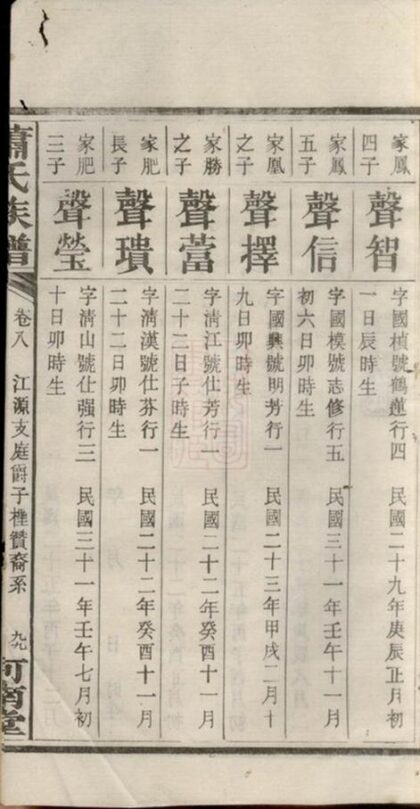 家鳳
四子
聲智
字國楨號鶴蓮行四 民國二十九年庚辰正月初
一日辰時生
家鳳
五子
聲信
字國模號志修行五 民國三十一年壬午十一月
初六日卯時生
家凰
之子
聲擇
字國興號明芳行一 民國二十三年甲戌二月十
九日卯時生
家勝
之子
聲蒕
字淸江號仕芳行一 民國二十二年癸酉十一月
二十二日子時生
家肥
長子
聲璝
字淸漢號仕芬行一 民國二十二年癸酉十一月
二十二日卯時生
家肥
三子
聲瑩
字淸山號仕强行三 民國三十一年壬午七月初
十日卯時生
蕭氏族譜
卷八 江源支庭爵子槐贊裔系 九九
河南堂